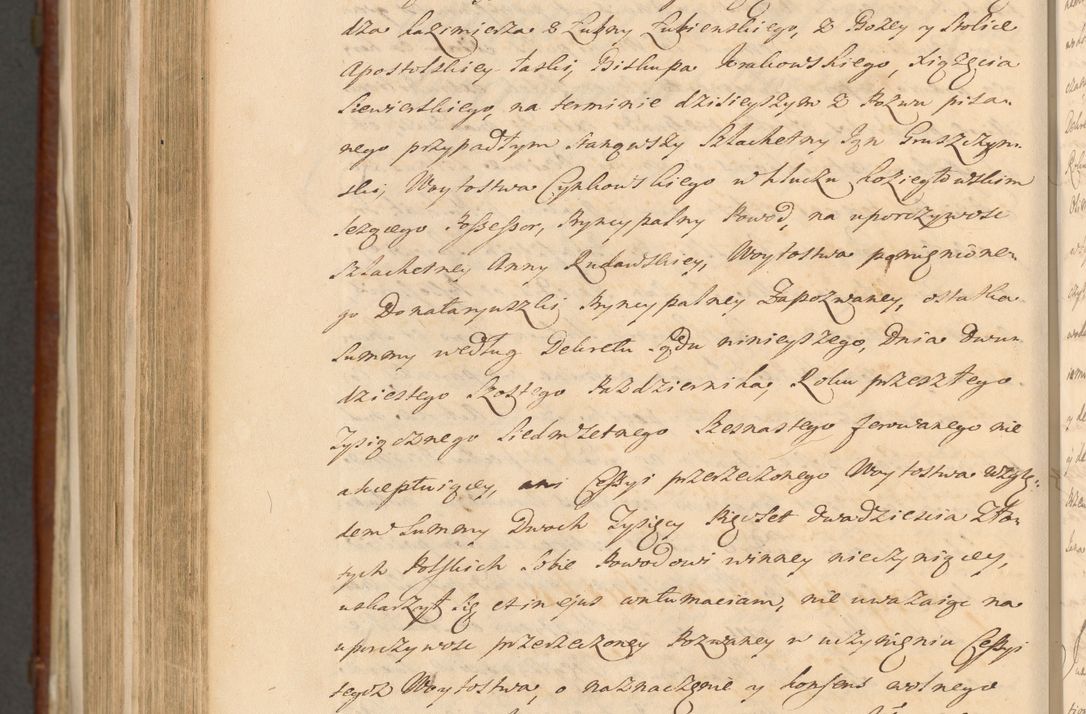 dza Kazimierza z Łubny Łubienskiego, z Bożey y Stolice
Apostolskiey łaski, Biskupa Krakowskiego, Xiążęcia
Siewierskiego, na terminie dzisieyszym z Pozwu pisa-
nego przypadłym stanąwszy Szlachetny Jan Gruszczyn-
ski, Woytostwa Cynkowskiego w kluczu Koziegłowskim
leżącego Possessor, Pryncypalny Powod, na uporczywosc
Szlachetney Anny Rudawskiey, Woytostwa pomienione-
go Donataryuszki Pryncypalney Zapozwaney, ostatka
Summy według Dekretu Sądu ninieyszego, Dnia Dwu-
dziestego Szostego Pazdziernika, Roku przeszłego
Tysiącznego Siedmsetnego Szesnastego ferowanego nie
akceptuiącey, ani Cessyi przerzeczonego Woytostwa wzglę-
dem Summy Dwoch Tysięcy Pięcset dwadziescia Zło-
tych Polskich sobie Powodowi winney nieczyniącey,
uskarzył się et in ejus contumaciam, nie uważaiąc na
uporczywosc przerzeczoney Pozwaney w uczynieniu Cessyi
tegoż Woytostwa, o naznaczenie y konsens wolnego